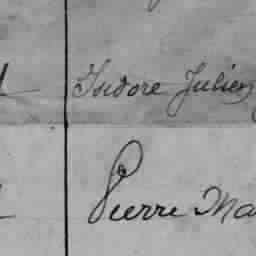 Isidore Julien
Pierre Ma